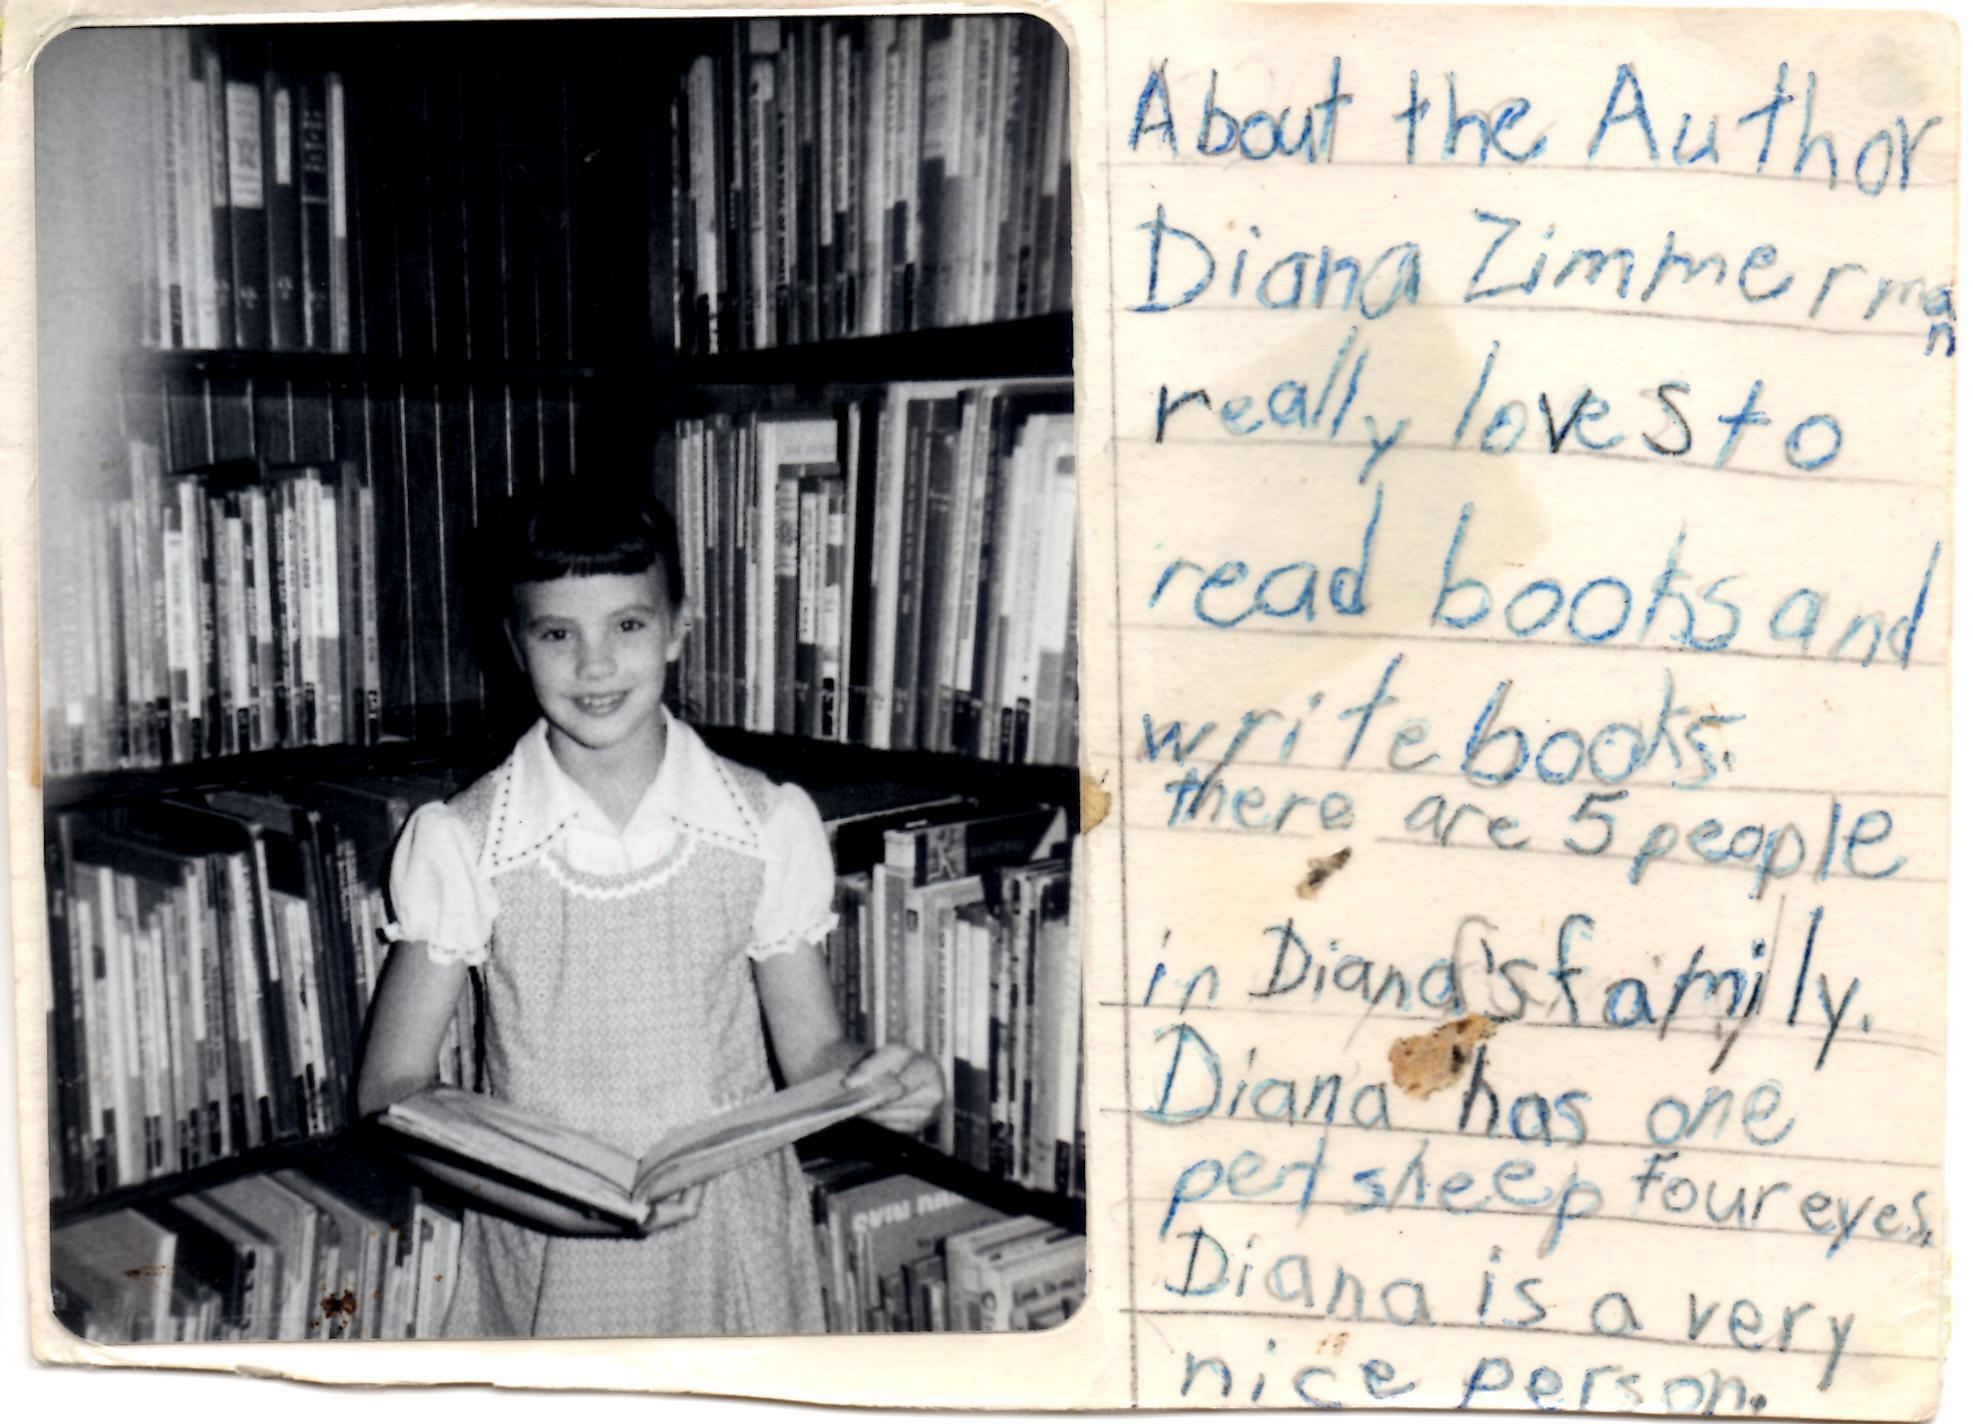 About the Author
Diana Zimmerman
really loves to
read books and
write books.
there are 5 people
in Diana's family.
Diana has one
pet sheep four eyes.
Diana is a very
nice person.